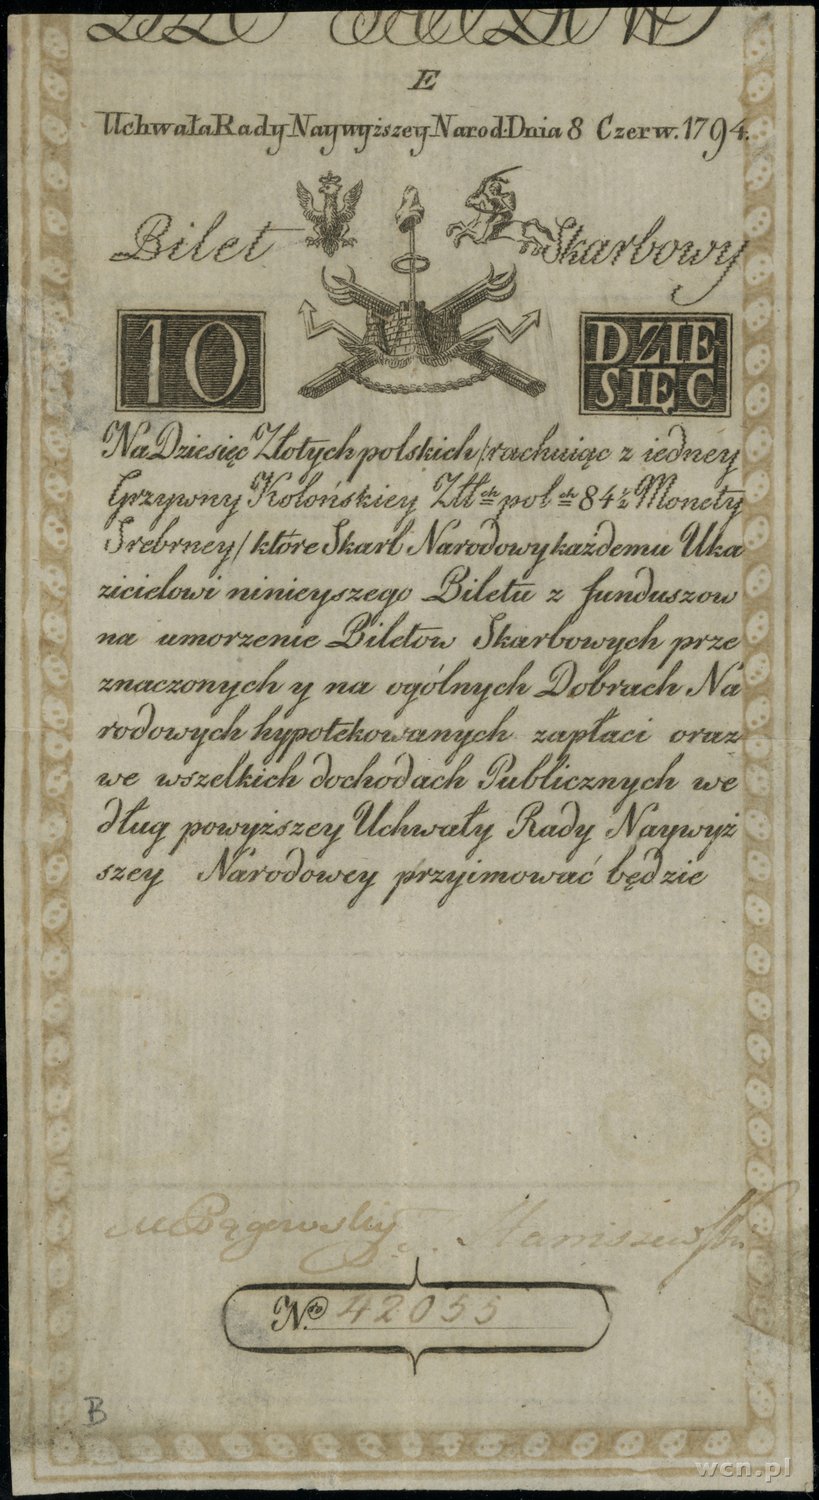 E
Uchwała Rady Naywyższey Narod: Dnia 8 Czerw. 1794.
Bilet Skarbowy
10 DZIE
SIĘC
Na Dziesięc Złotych polskich /rachuiąc z iedney
Grzywny Kolońskiey Złł ch pol ch 84½ Monety
Srebrney/ które Skarb Narodowy każdemu Uka
zicielowi ninieyszego Biletu z funduszow
na umorzenie Biletow Skarbowych prze
znaczonych y na ogólnych Dobrach Na
rodowych hypotekowanych zapłaci oraz
we wszelkich dochodach Publicznych we
dług powyższey Uchwały Rady Naywyż
szey Narodowey przyimować będzie
M Pągowski Staniszewski
N.ro 42055
B
wcn.pl